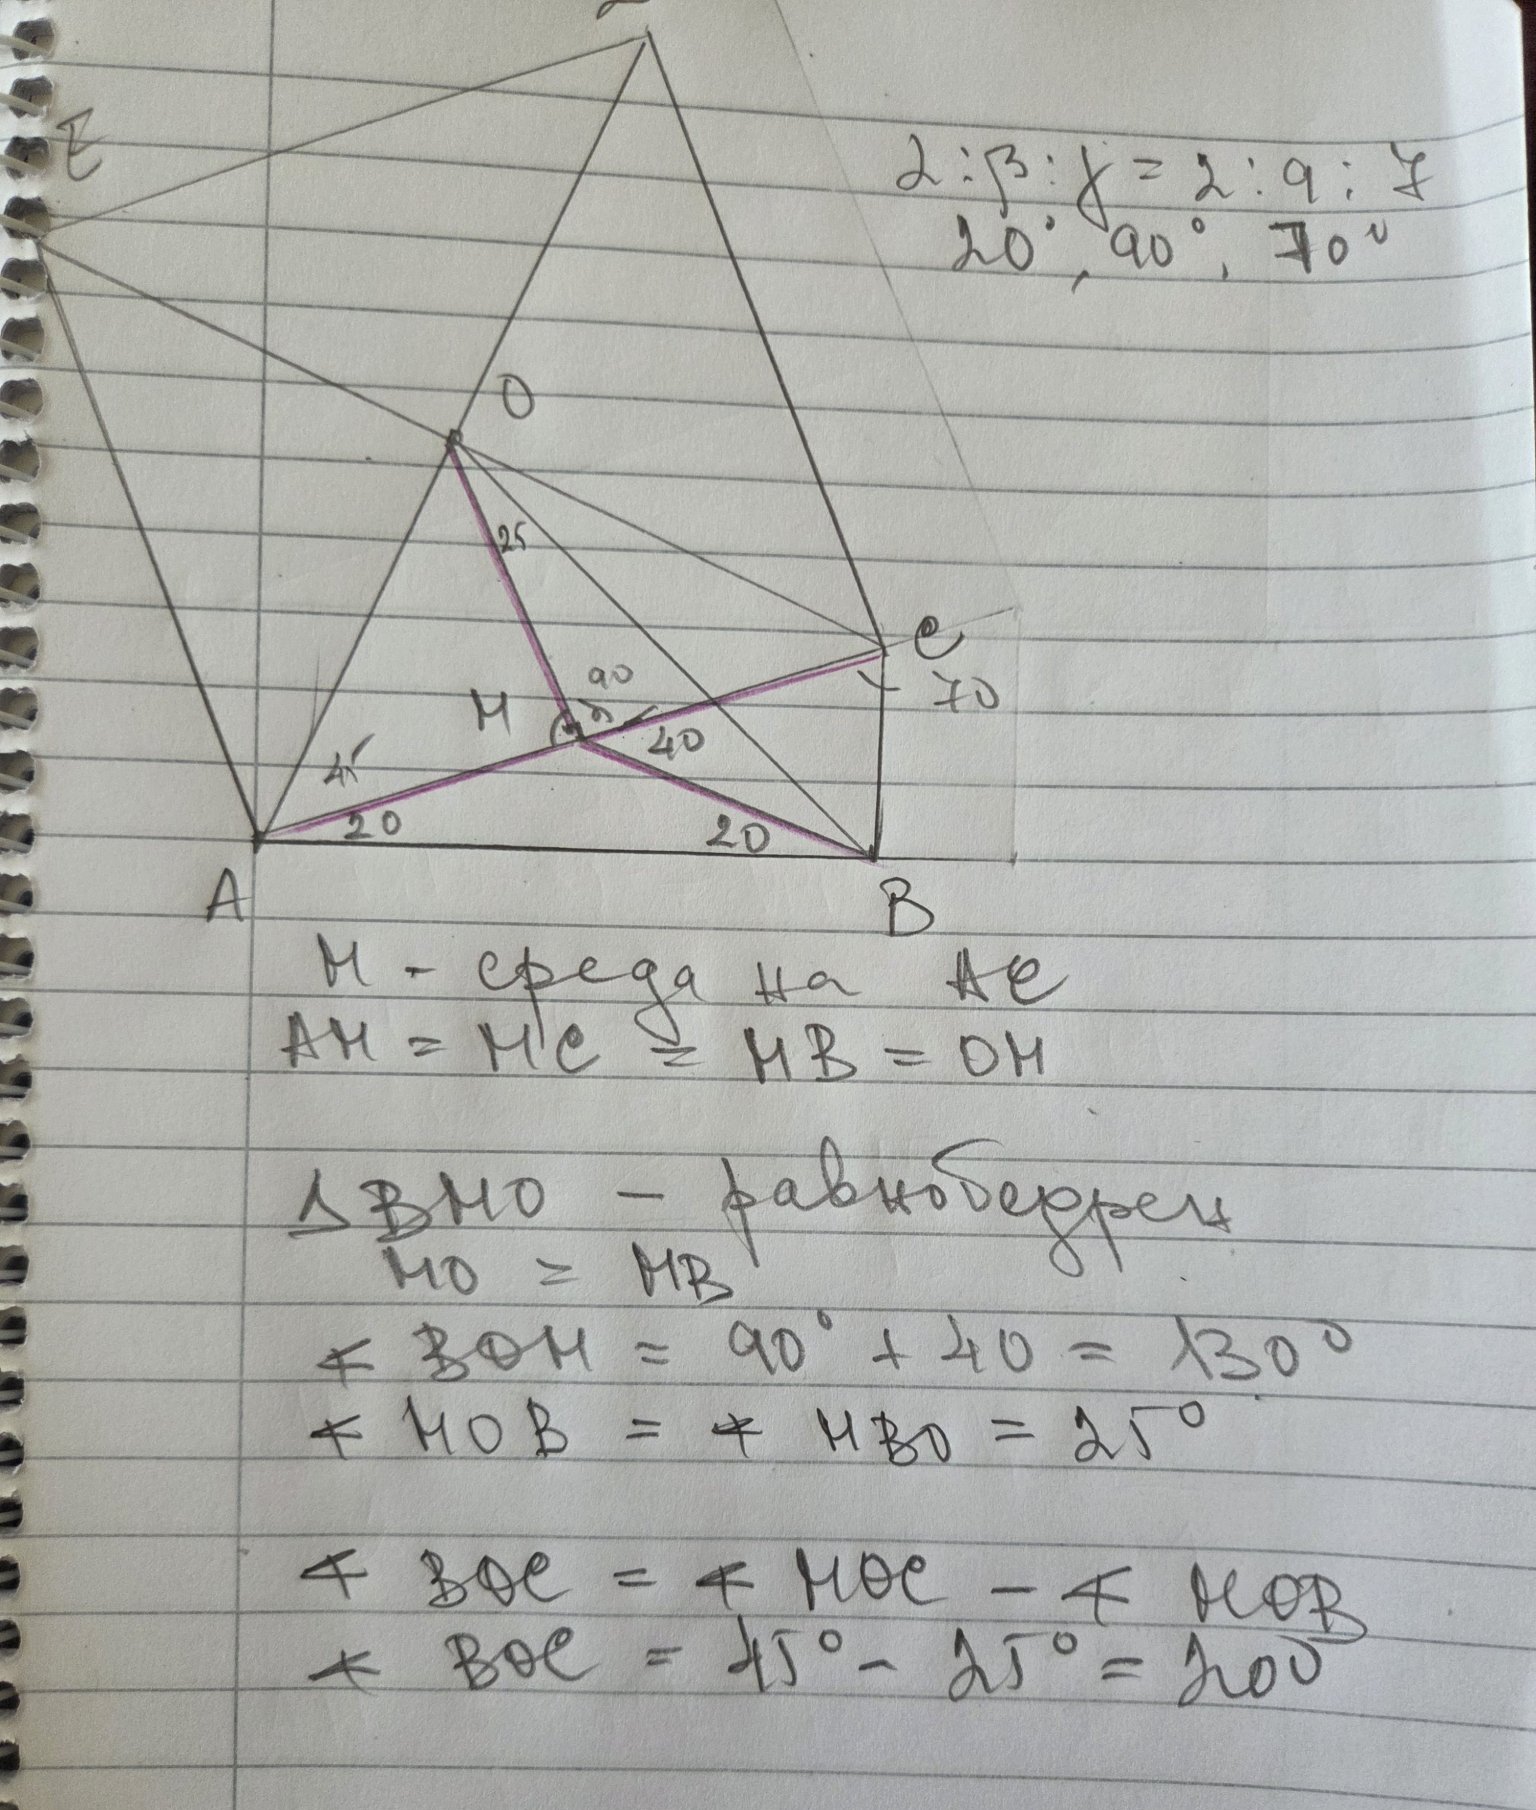 E
α:β:γ = 2:9:7
20°, 90°, 70°
O
25
90
M
C
70
40
45
20
20
A
B
M - среда на AC
AM = MC = MB = OM
ΔBMO - равнобедрен
MO = MB
∢ BOM = 90° + 40 = 130°
∢ MOB = ∢ MBO = 25°
∢ BOC = ∢ MOC - ∢ MOB
∢ BOC = 45° - 25° = 20°